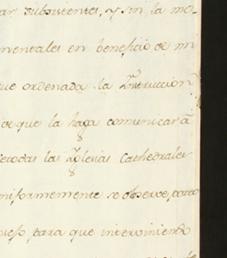 ar subsistentes, y sin la mo-
mentales en beneficio de mi
que ordenada la Ynstruccion
de que la haga comunicar à
de todas las Yglesias Cathedrales
niformemente se observe, para
para que interviniendo